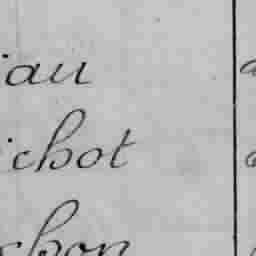 iau
ichot
chon